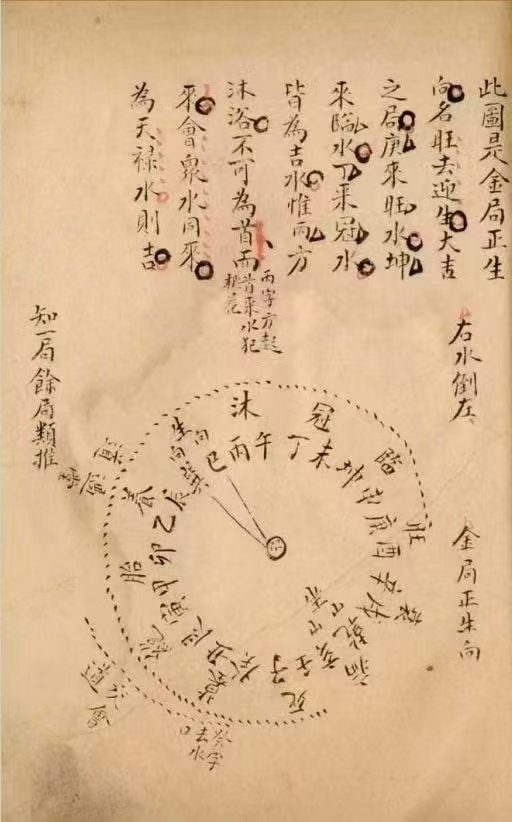 此圖是金局正生
向名旺去迎生大吉
之局庚來旺水坤
來臨水丁來冠水
皆為吉水惟丙方
沐浴不可為首而
丙字方起
首來水犯
桃花
來會衆水同來
為天祿水則吉
右水倒左
金局正生向
知一局餘局類推
沐
冠
臨
旺
衰
病
死
墓
絕
胎
養
生向
巳丙午丁未坤申庚酉辛戌乾亥壬子癸丑艮寅甲卯乙辰
癸字
去水
口